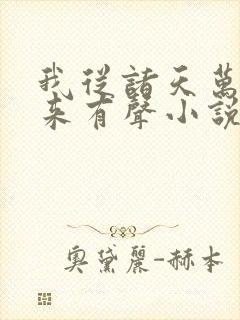 我從諸天萬
來有聲小說
奧黛麗-赫本